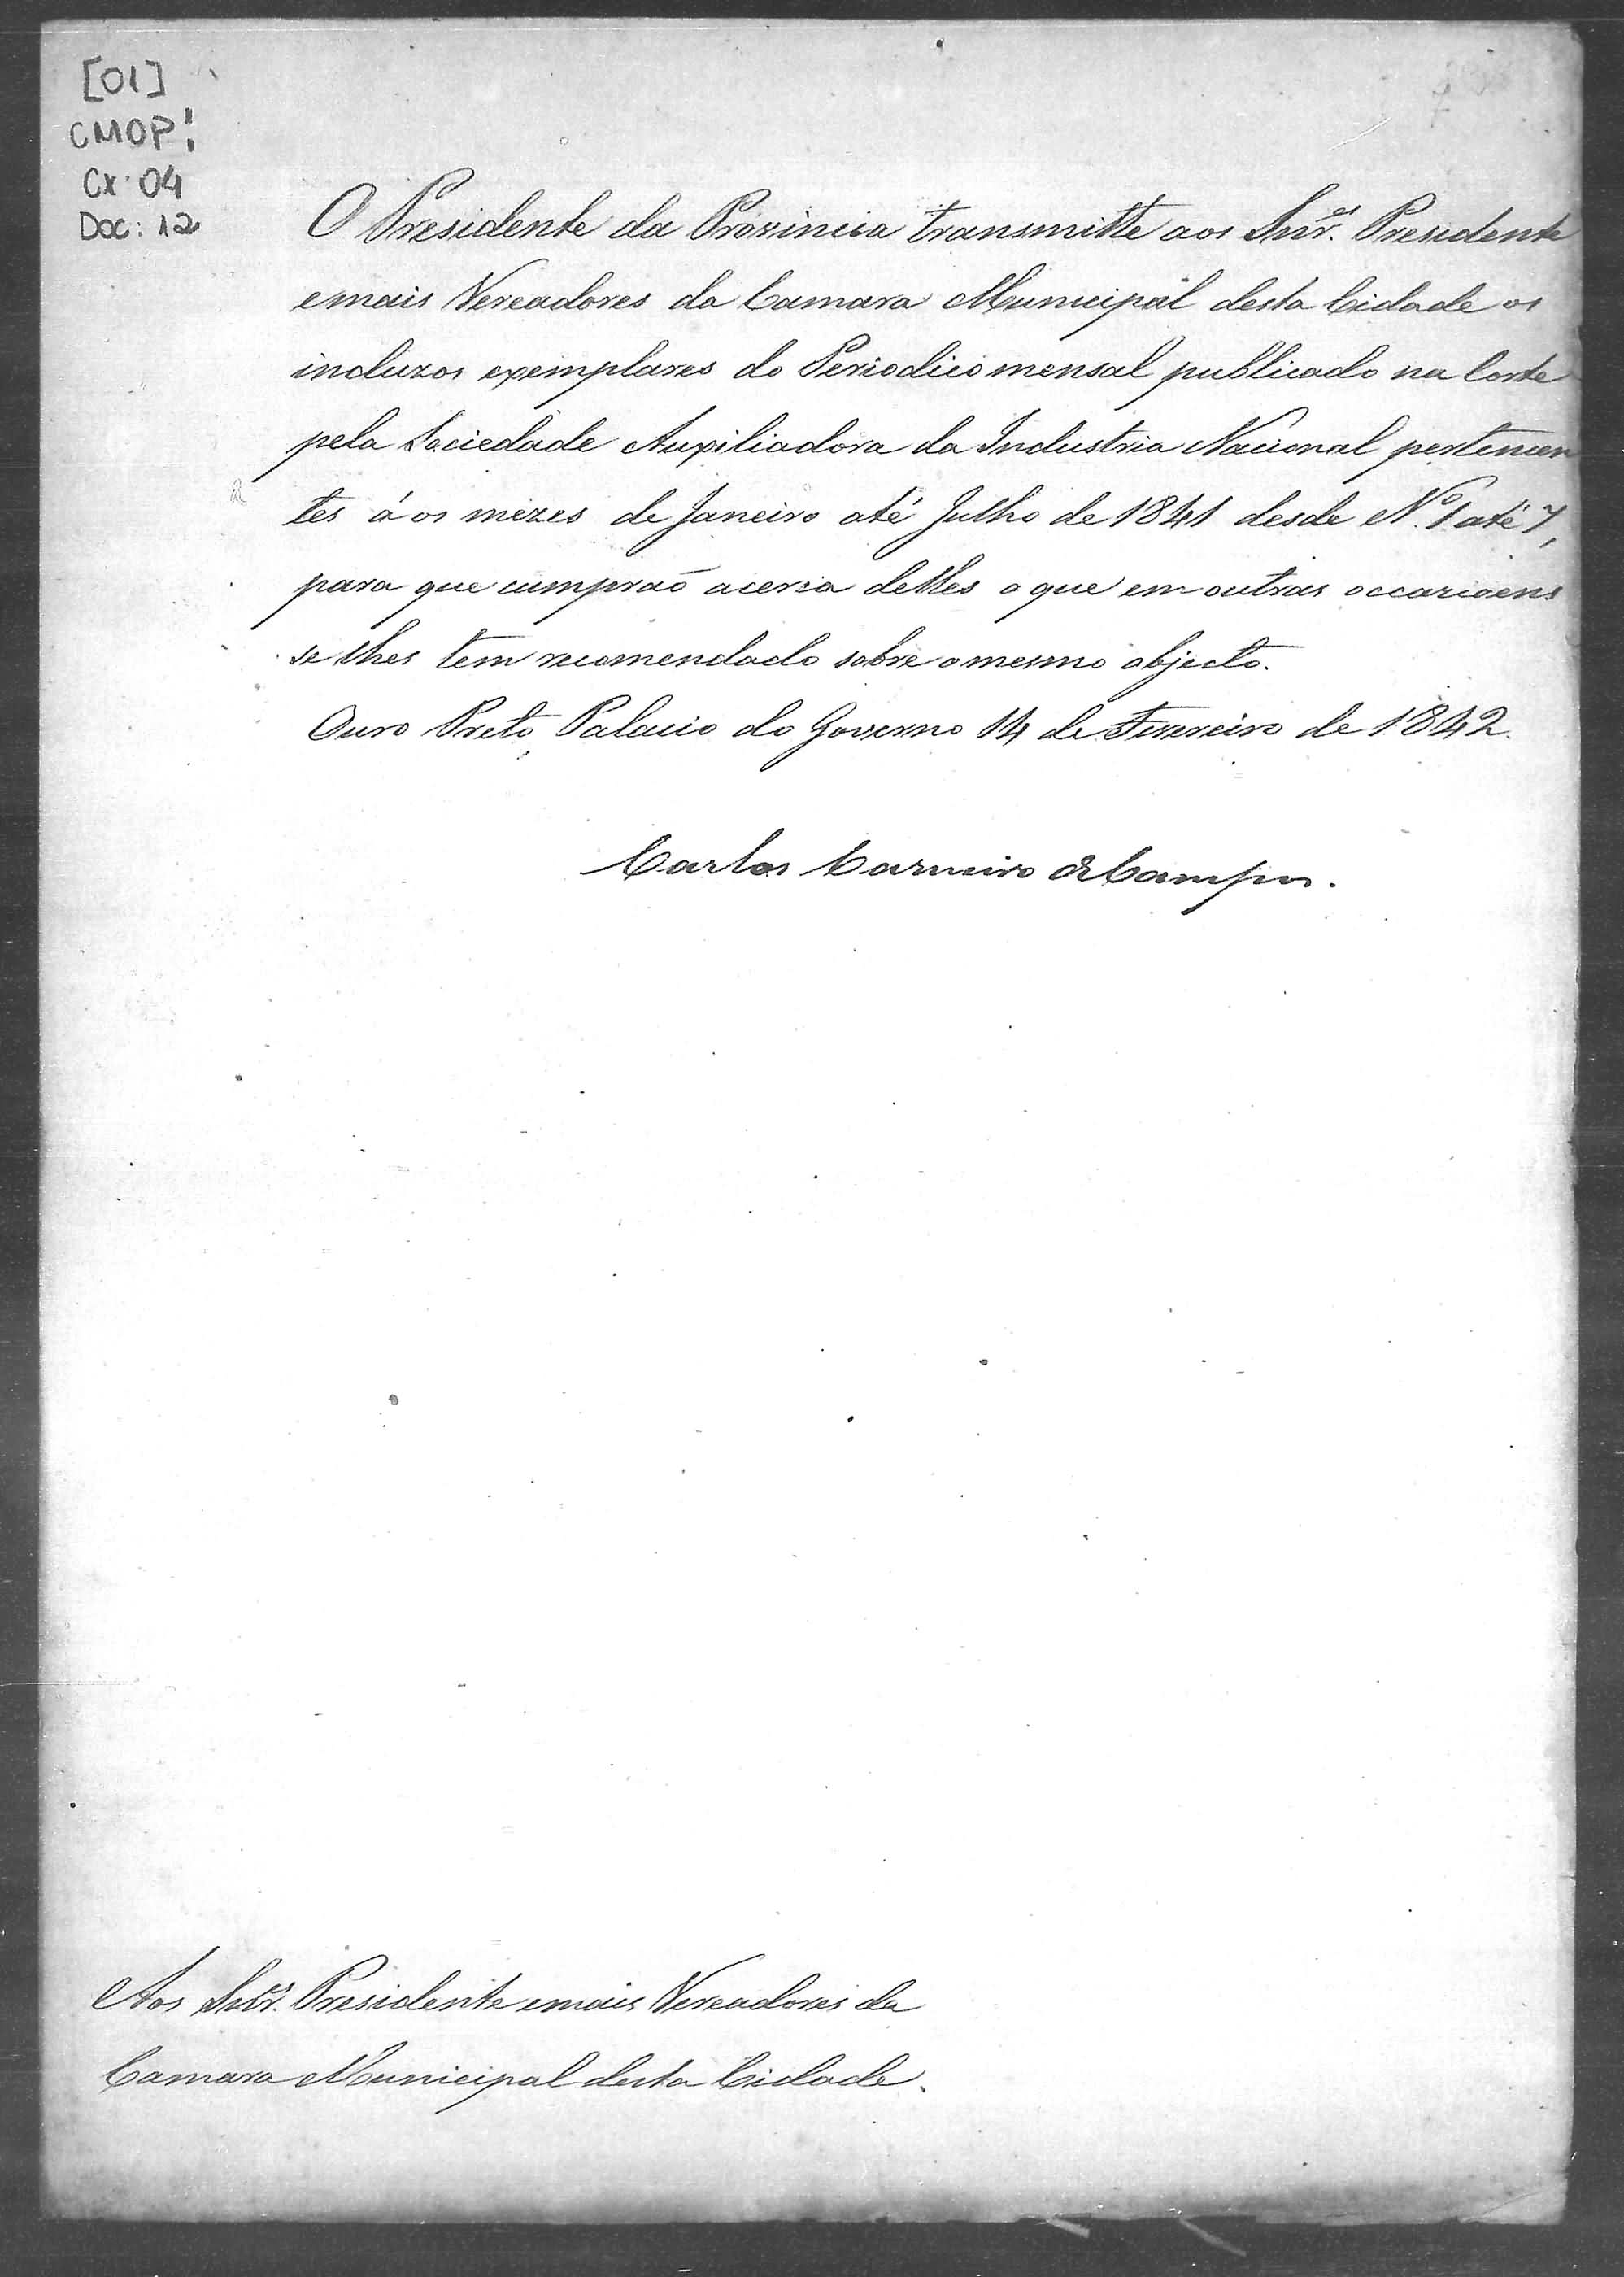 [01]
CMOP:
Cx: 04
Doc: 12
O Presidente da Provincia transmitte aos Snr.es Presidente
emais Vereadores da Camara Municipal desta Cidade os
incluzos exemplares do Periodico mensal publicado na Corte
pela Sociedade Auxiliadora da Industria Nacional pertencen
tes á os mezes de Janeiro até Julho de 1841 desde N.º 1 até 7,
para que cumpraõ acerca delles o que em outras occazioens
se lhes tem recomendado sobre o mesmo objecto.
Ouro Preto Palacio do Governo 14 de Fevereiro de 1842.
Carlos Carneiro de Campos.
Aos Snr.es Presidente emais Vereadores da
Camara Municipal desta Cidade.